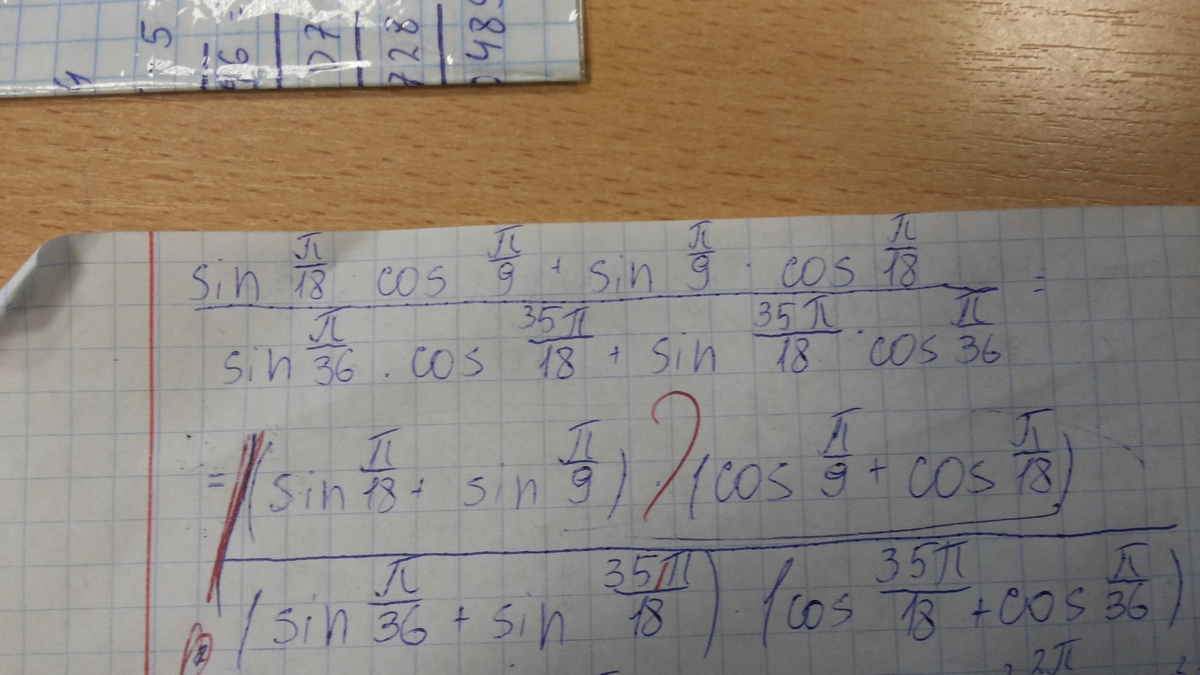 5
6
07
728
048
sin π/18 · cos π/9 + sin π/9 · cos π/18 =
sin π/36 · cos 35π/18 + sin 35π/18 · cos π/36
= (sin π/18 + sin π/9) · (cos π/9 + cos π/18)
?
(sin π/36 + sin 35π/18) · (cos 35π/18 + cos π/36)
2π